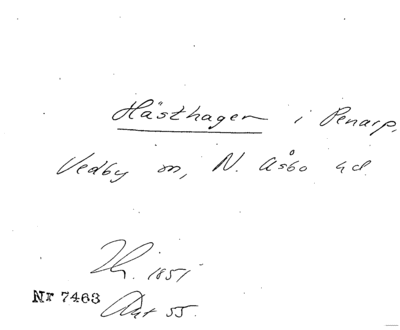 Hästhagen i Penarp,
Vedby sn, N. Åsbo hd.
1851
Nr 7463
Akt 55.